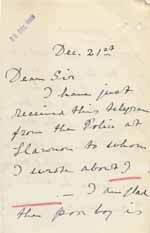 Dec. 21st
Dear Sir
I have just
received this telegram
from the Police at
to whom
I wrote about)
— I am glad
the poor boy is